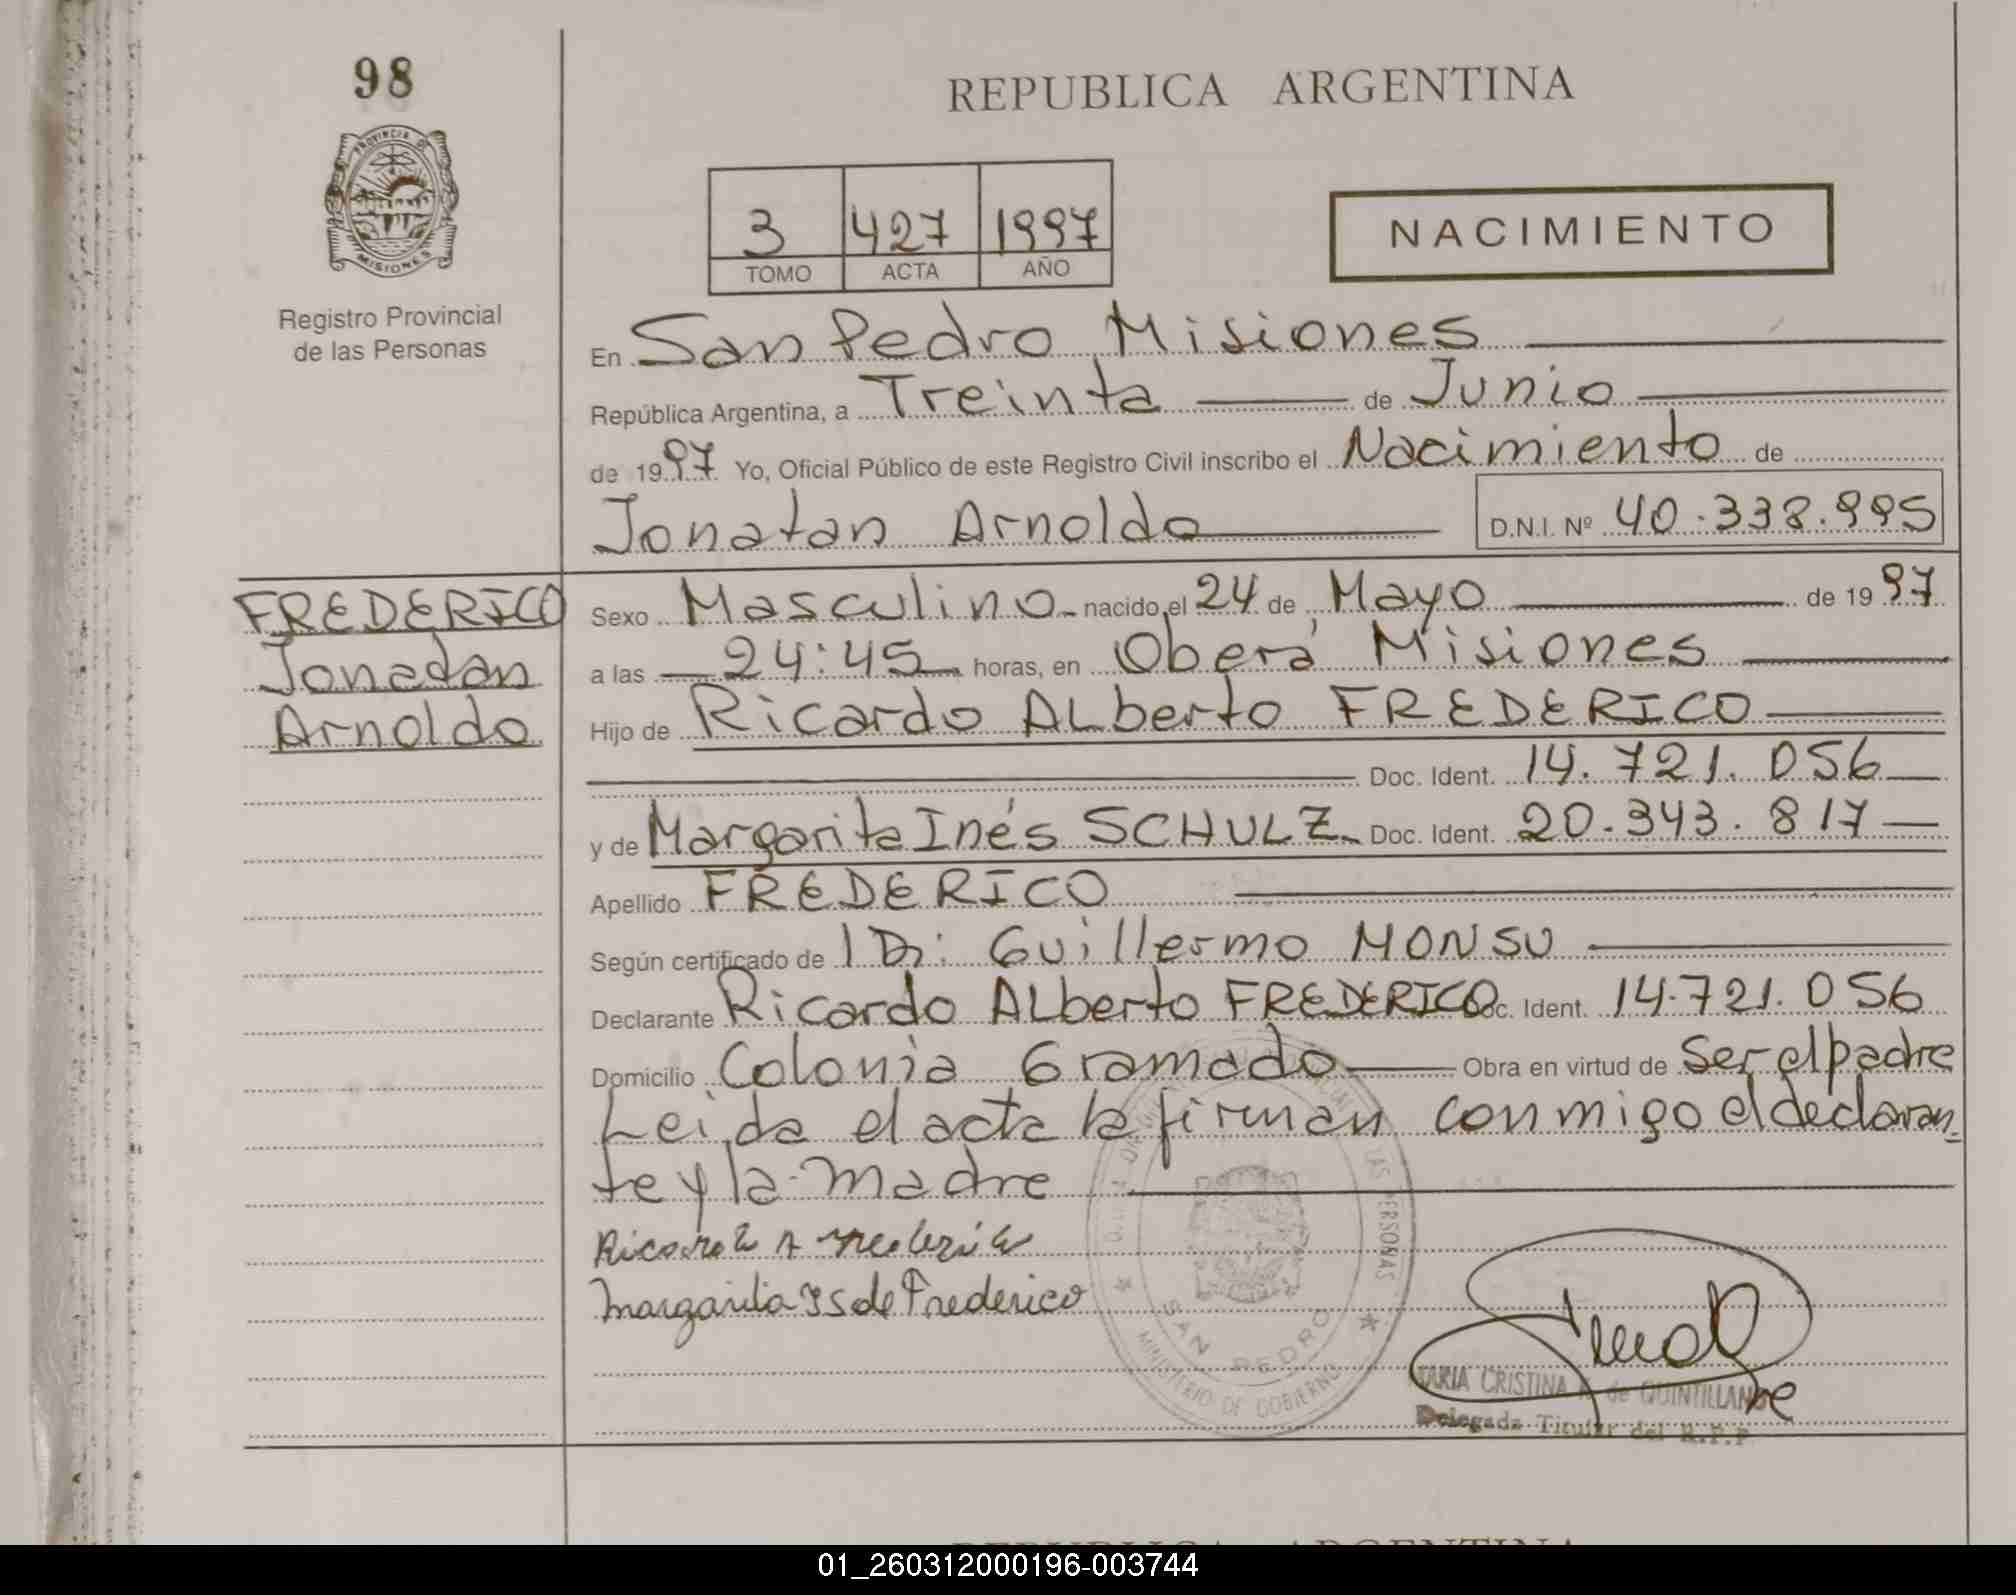 98
REPUBLICA ARGENTINA
PROVINCIA DE
MISIONES
Registro Provincial
de las Personas
3 427 1997
TOMO ACTA AÑO
NACIMIENTO
En San Pedro Misiones
República Argentina, a Treinta de Junio
de 1997 Yo, Oficial Público de este Registro Civil inscribo el Nacimiento de
Jonatan Arnoldo D.N.I. Nº 40.338.995
FREDERICO
Jonatan
Arnoldo
Sexo Masculino nacido el 24 de Mayo de 1997
a las 24:45 horas, en Oberá Misiones
Hijo de Ricardo ALberto FREDERICO
Doc. Ident. 14.721.056
y de Margarita Inés SCHULZ Doc. Ident. 20.343.817
Apellido FREDERICO
Según certificado de Guillermo MONSU
Declarante Ricardo ALberto FREDERICO Doc. Ident. 14.721.056
Domicilio Colonia Gramado Obra en virtud de Ser el padre
Leida el acta la firman conmigo el declaran
te y la madre
Margarita IS de Frederico
LAS PERSONAS
SAN PEDRO
MINISTERIO DE GOBIERNO
MARIA CRISTINA de QUINTILLAN
Delegada Titular del R.P.P
REPUBLICA ARGENTINA
01_260312000196-003744